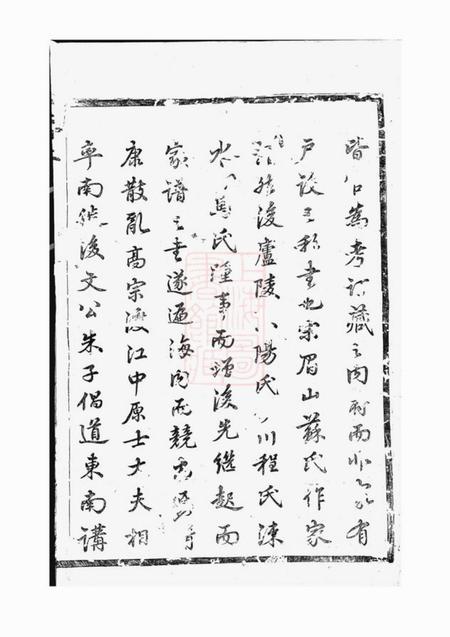 皆 爲考訂藏之内府而非 有
戶設之私書也宋眉山蘇氏作家
譜然後廬陵 陽氏 川程氏涑
水 馬氏踵事而增後先繼起而
家譜之書遂遍海内而競
康散亂高宗渡江中原士大夫相
率南徙後文公朱子倡道東南講